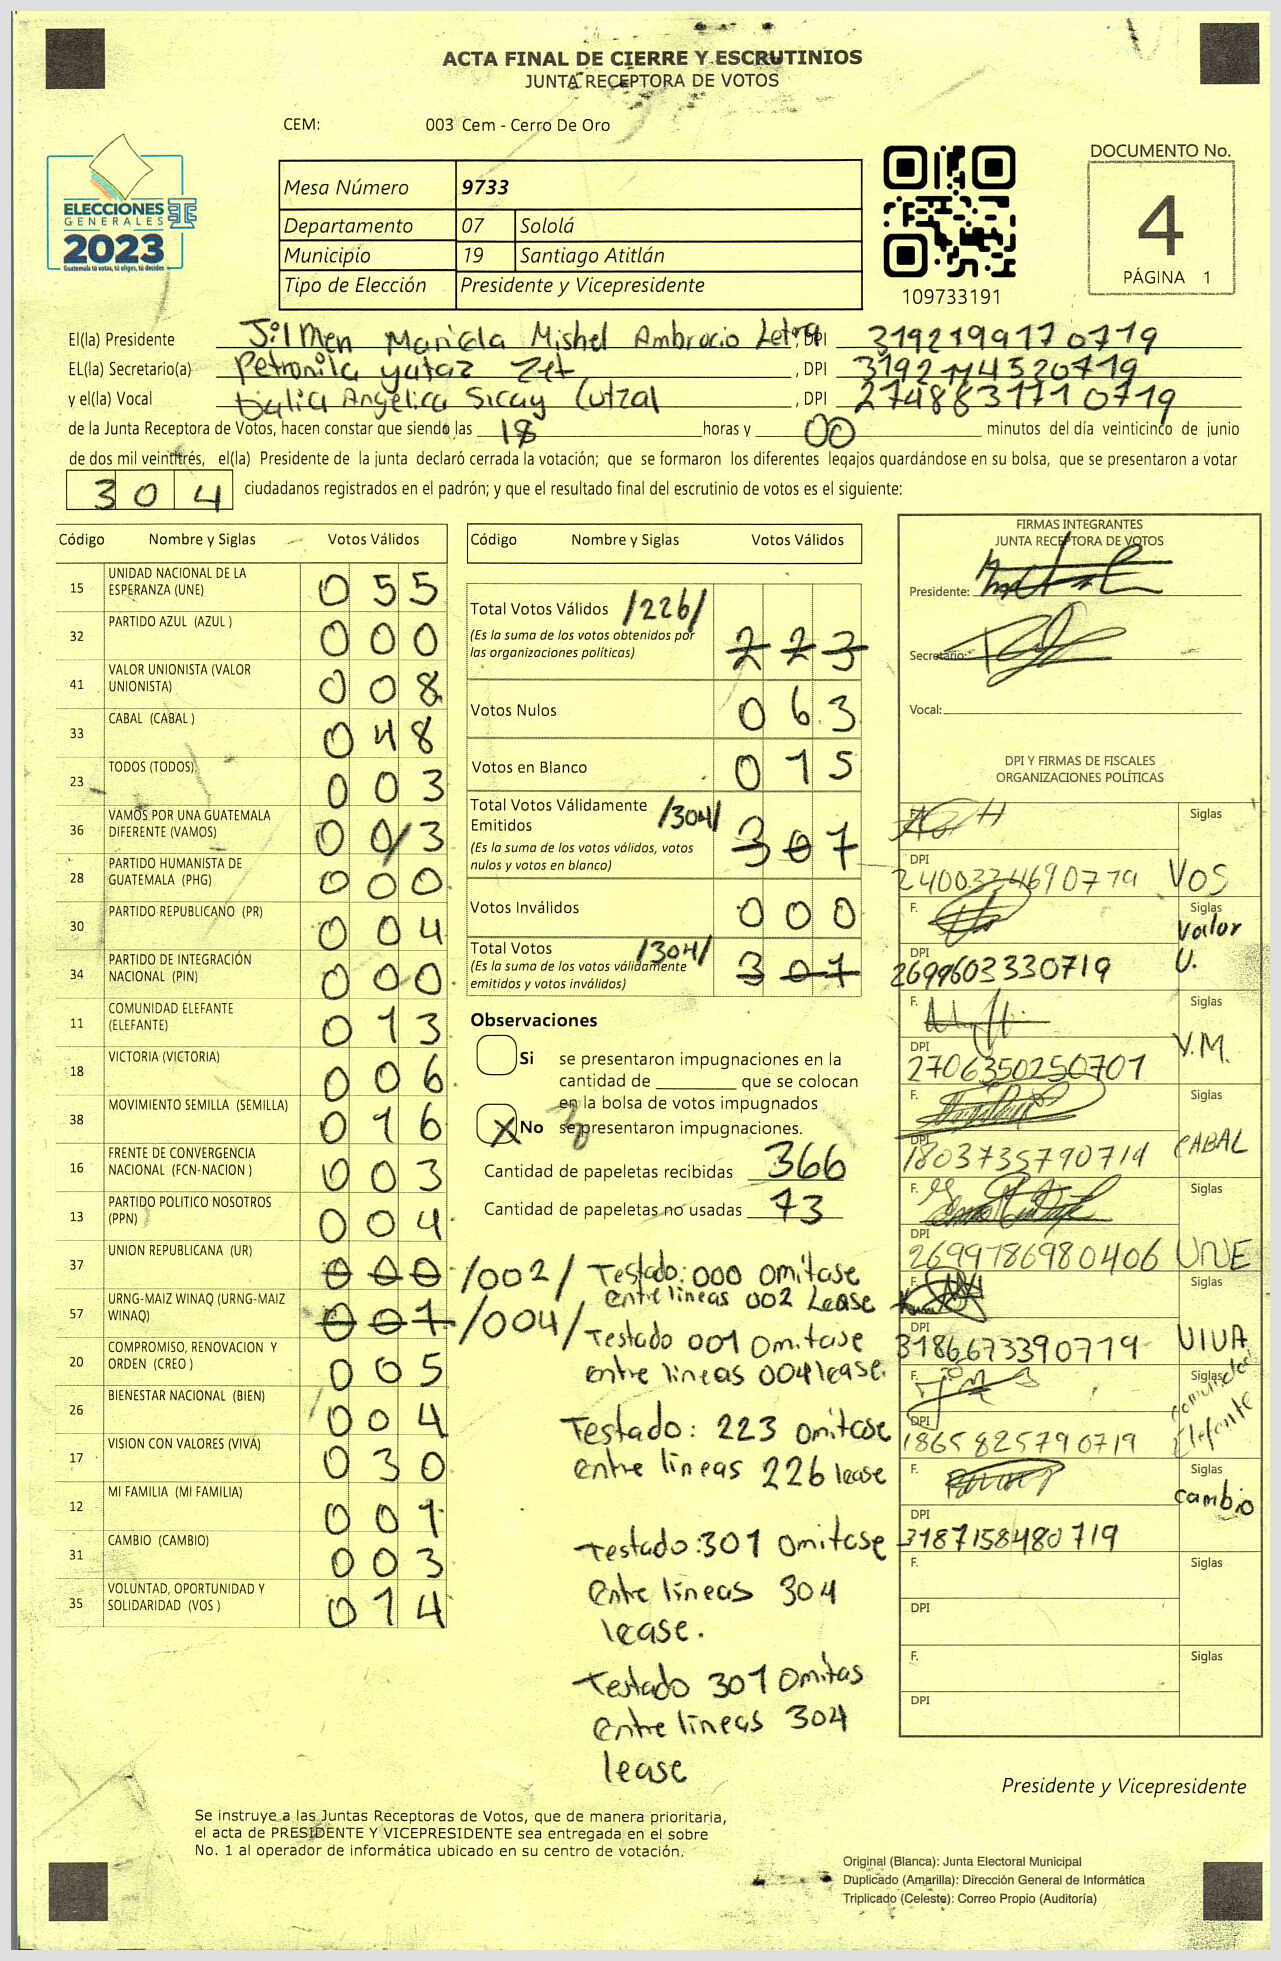 ACTA FINAL DE CIERRE Y ESCRUTINIOS
JUNTA RECEPTORA DE VOTOS
CEM: 003 Cem - Cerro De Oro
ELECCIONES
GENERALES
2023
Guatemala tú votas, tú eliges, tú decides
Mesa Número 9733
Departamento 07 Sololá
Municipio 19 Santiago Atitlán
Tipo de Elección Presidente y Vicepresidente
109733191
DOCUMENTO No.
4
PÁGINA 1
El(la) Presidente Maricla Mishel Ambrocio , DPI 3192199170719
EL(la) Secretario(a) Petronila yataz Zet , DPI 3192114520719
y el(la) Vocal Dalia Angelica Sicay Cutzal , DPI 2748831710719
de la Junta Receptora de Votos, hacen constar que siendo las 18 horas y 00 minutos del día veinticinco de junio
de dos mil veintitrés, el(la) Presidente de la junta declaró cerrada la votación; que se formaron los diferentes legajos guardándose en su bolsa, que se presentaron a votar
304 ciudadanos registrados en el padrón; y que el resultado final del escrutinio de votos es el siguiente:
Código Nombre y Siglas Votos Válidos
15 UNIDAD NACIONAL DE LA ESPERANZA (UNE) 055
32 PARTIDO AZUL (AZUL ) 000
41 VALOR UNIONISTA (VALOR UNIONISTA) 008
33 CABAL (CABAL ) 048
23 TODOS (TODOS) 003
36 VAMOS POR UNA GUATEMALA DIFERENTE (VAMOS) 00/3
28 PARTIDO HUMANISTA DE GUATEMALA (PHG) 000
30 PARTIDO REPUBLICANO (PR) 004
34 PARTIDO DE INTEGRACIÓN NACIONAL (PIN) 000
11 COMUNIDAD ELEFANTE (ELEFANTE) 013
18 VICTORIA (VICTORIA) 006
38 MOVIMIENTO SEMILLA (SEMILLA) 016
16 FRENTE DE CONVERGENCIA NACIONAL (FCN-NACION ) 003
13 PARTIDO POLITICO NOSOTROS (PPN) 004
37 UNION REPUBLICANA (UR) 000 /002/
57 URNG-MAIZ WINAQ (URNG-MAIZ WINAQ) 001 /004/
20 COMPROMISO, RENOVACION Y ORDEN (CREO ) 005
26 BIENESTAR NACIONAL (BIEN) 004
17 VISION CON VALORES (VIVA) 030
12 MI FAMILIA (MI FAMILIA) 001
31 CAMBIO (CAMBIO) 003
35 VOLUNTAD, OPORTUNIDAD Y SOLIDARIDAD (VOS ) 014
Código Nombre y Siglas Votos Válidos
Total Votos Válidos /226/ 223
(Es la suma de los votos obtenidos por
las organizaciones políticas)
Votos Nulos 063
Votos en Blanco 015
Total Votos Válidamente
Emitidos /304/ 301
(Es la suma de los votos válidos, votos
nulos y votos en blanco)
Votos Inválidos 000
Total Votos /304/ 301
(Es la suma de los votos válidamente
emitidos y votos inválidos)
Observaciones
Si se presentaron impugnaciones en la
cantidad de ________ que se colocan
en la bolsa de votos impugnados
X No se presentaron impugnaciones.
Cantidad de papeletas recibidas 366
Cantidad de papeletas no usadas 73
Testado: 000 Omitase
entre lineas 002 Lease
Testado 001 Omitase
entre lineas 004 lease.
Testado: 223 omitase
entre lineas 226 lease
Testado: 301 Omitase
Entre lineas 304
lease.
Testado 301 Omitas
entre lineas 304
lease
FIRMAS INTEGRANTES
JUNTA RECEPTORA DE VOTOS
Presidente:
Secretario:
Vocal:
DPI Y FIRMAS DE FISCALES
ORGANIZACIONES POLÍTICAS
F. Siglas
DPI 2400334690719 VOS
F. Siglas
DPI 2699603330719 Valor U.
F. Siglas
DPI 2706350250701 V.M.
F. Siglas
DPI 1803735790719 CABAL
F. Siglas
DPI 2699786980406 UNE
F. Siglas
DPI 3186673390719 VIVA
F. Siglas
DPI 1865825790719 comunidad Elefante
F. Siglas
DPI 3187158480719 cambio
F. Siglas
DPI
F. Siglas
DPI
Presidente y Vicepresidente
Se instruye a las Juntas Receptoras de Votos, que de manera prioritaria,
el acta de PRESIDENTE Y VICEPRESIDENTE sea entregada en el sobre
No. 1 al operador de informática ubicado en su centro de votación.
Original (Blanca): Junta Electoral Municipal
Duplicado (Amarilla): Dirección General de Informática
Triplicado (Celeste): Correo Propio (Auditoría)